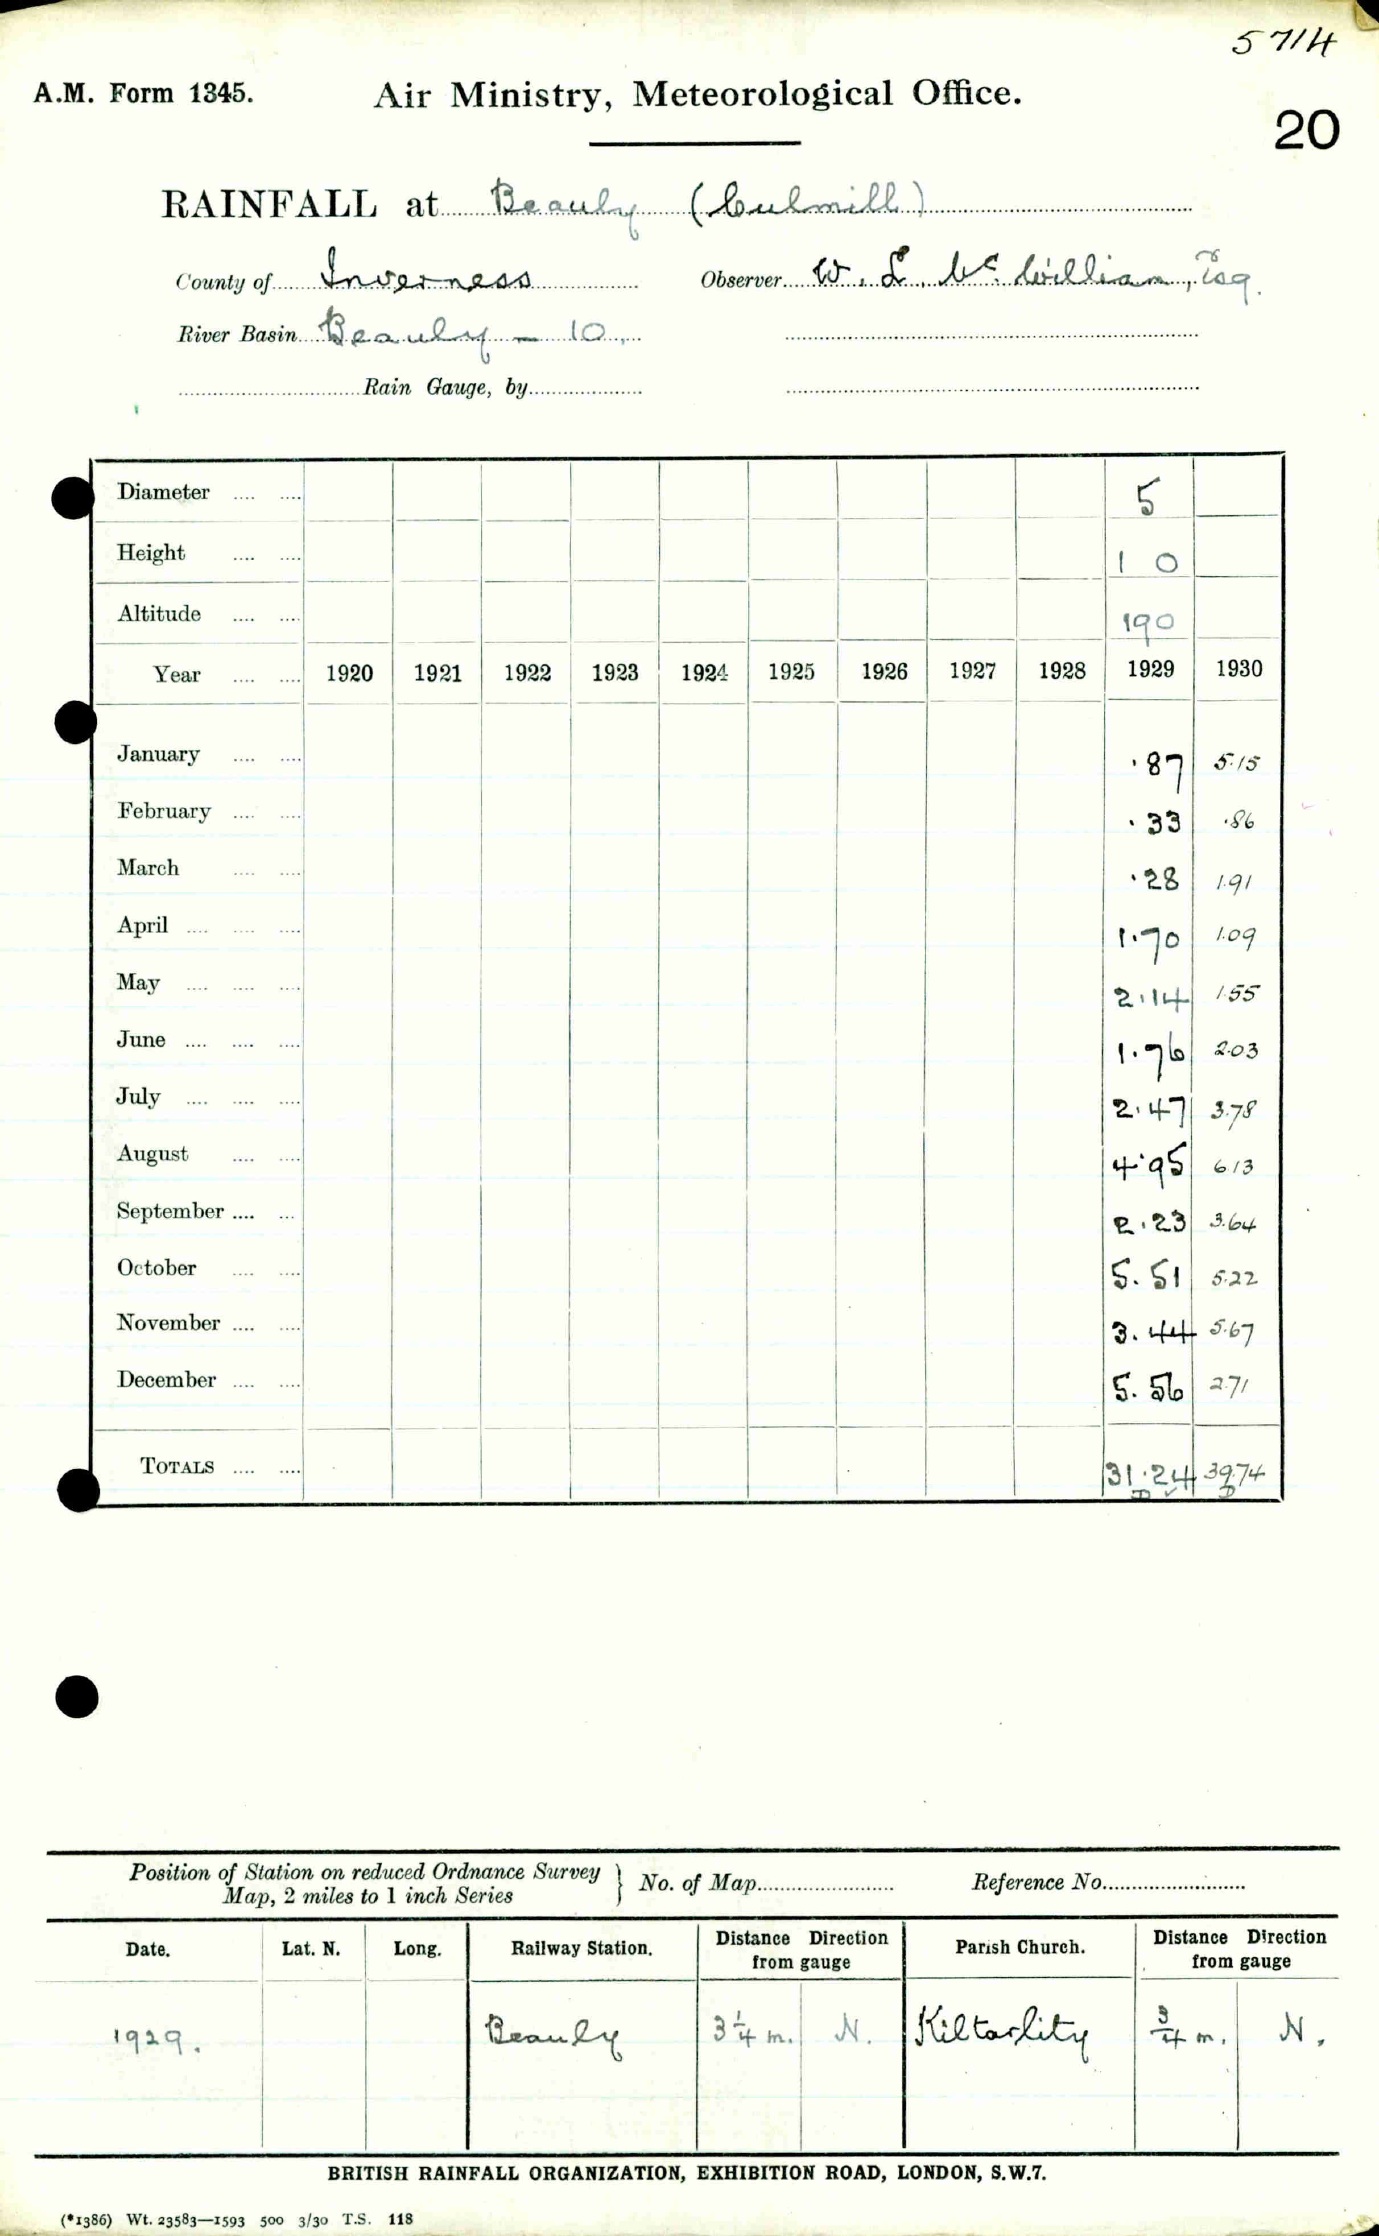 5714
A.M. Form 1345. Air Ministry, Meteorological Office.
20
RAINFALL at Beauly (Culmill)
County of Inverness Observer W. L. Mc. William, Esq.
River Basin Beauly - 10.
Rain Gauge, by
Diameter .... .... 5
Height .... .... 1 0
Altitude .... .... 190
Year .... .... 1920 1921 1922 1923 1924 1925 1926 1927 1928 1929 1930
January .... .... ·87 5·15
February .... .... ·33 ·86
March .... .... ·28 1·91
April .... .... .... 1·70 1·09
May .... .... .... 2·14 1·55
June .... .... .... 1·76 2·03
July .... .... .... 2·47 3·78
August .... .... 4·95 6 13
September .... .... 2·23 3·64
October .... .... 5·51 5·22
November .... .... 3·44 5·67
December .... .... 5·56 2·71
TOTALS .... .... 31·24 39·74
D ✓ D
Position of Station on reduced Ordnance Survey Map, 2 miles to 1 inch Series } No. of Map Reference No.
Date. Lat. N. Long. Railway Station. Distance Direction from gauge Parish Church. Distance Direction from gauge
1929. Beauly 3 1/4 m. N. Kiltarlity 3/4 m. N.
BRITISH RAINFALL ORGANIZATION, EXHIBITION ROAD, LONDON, S.W.7.
(*1386) Wt. 23583—1593 500 3/30 T.S. 118